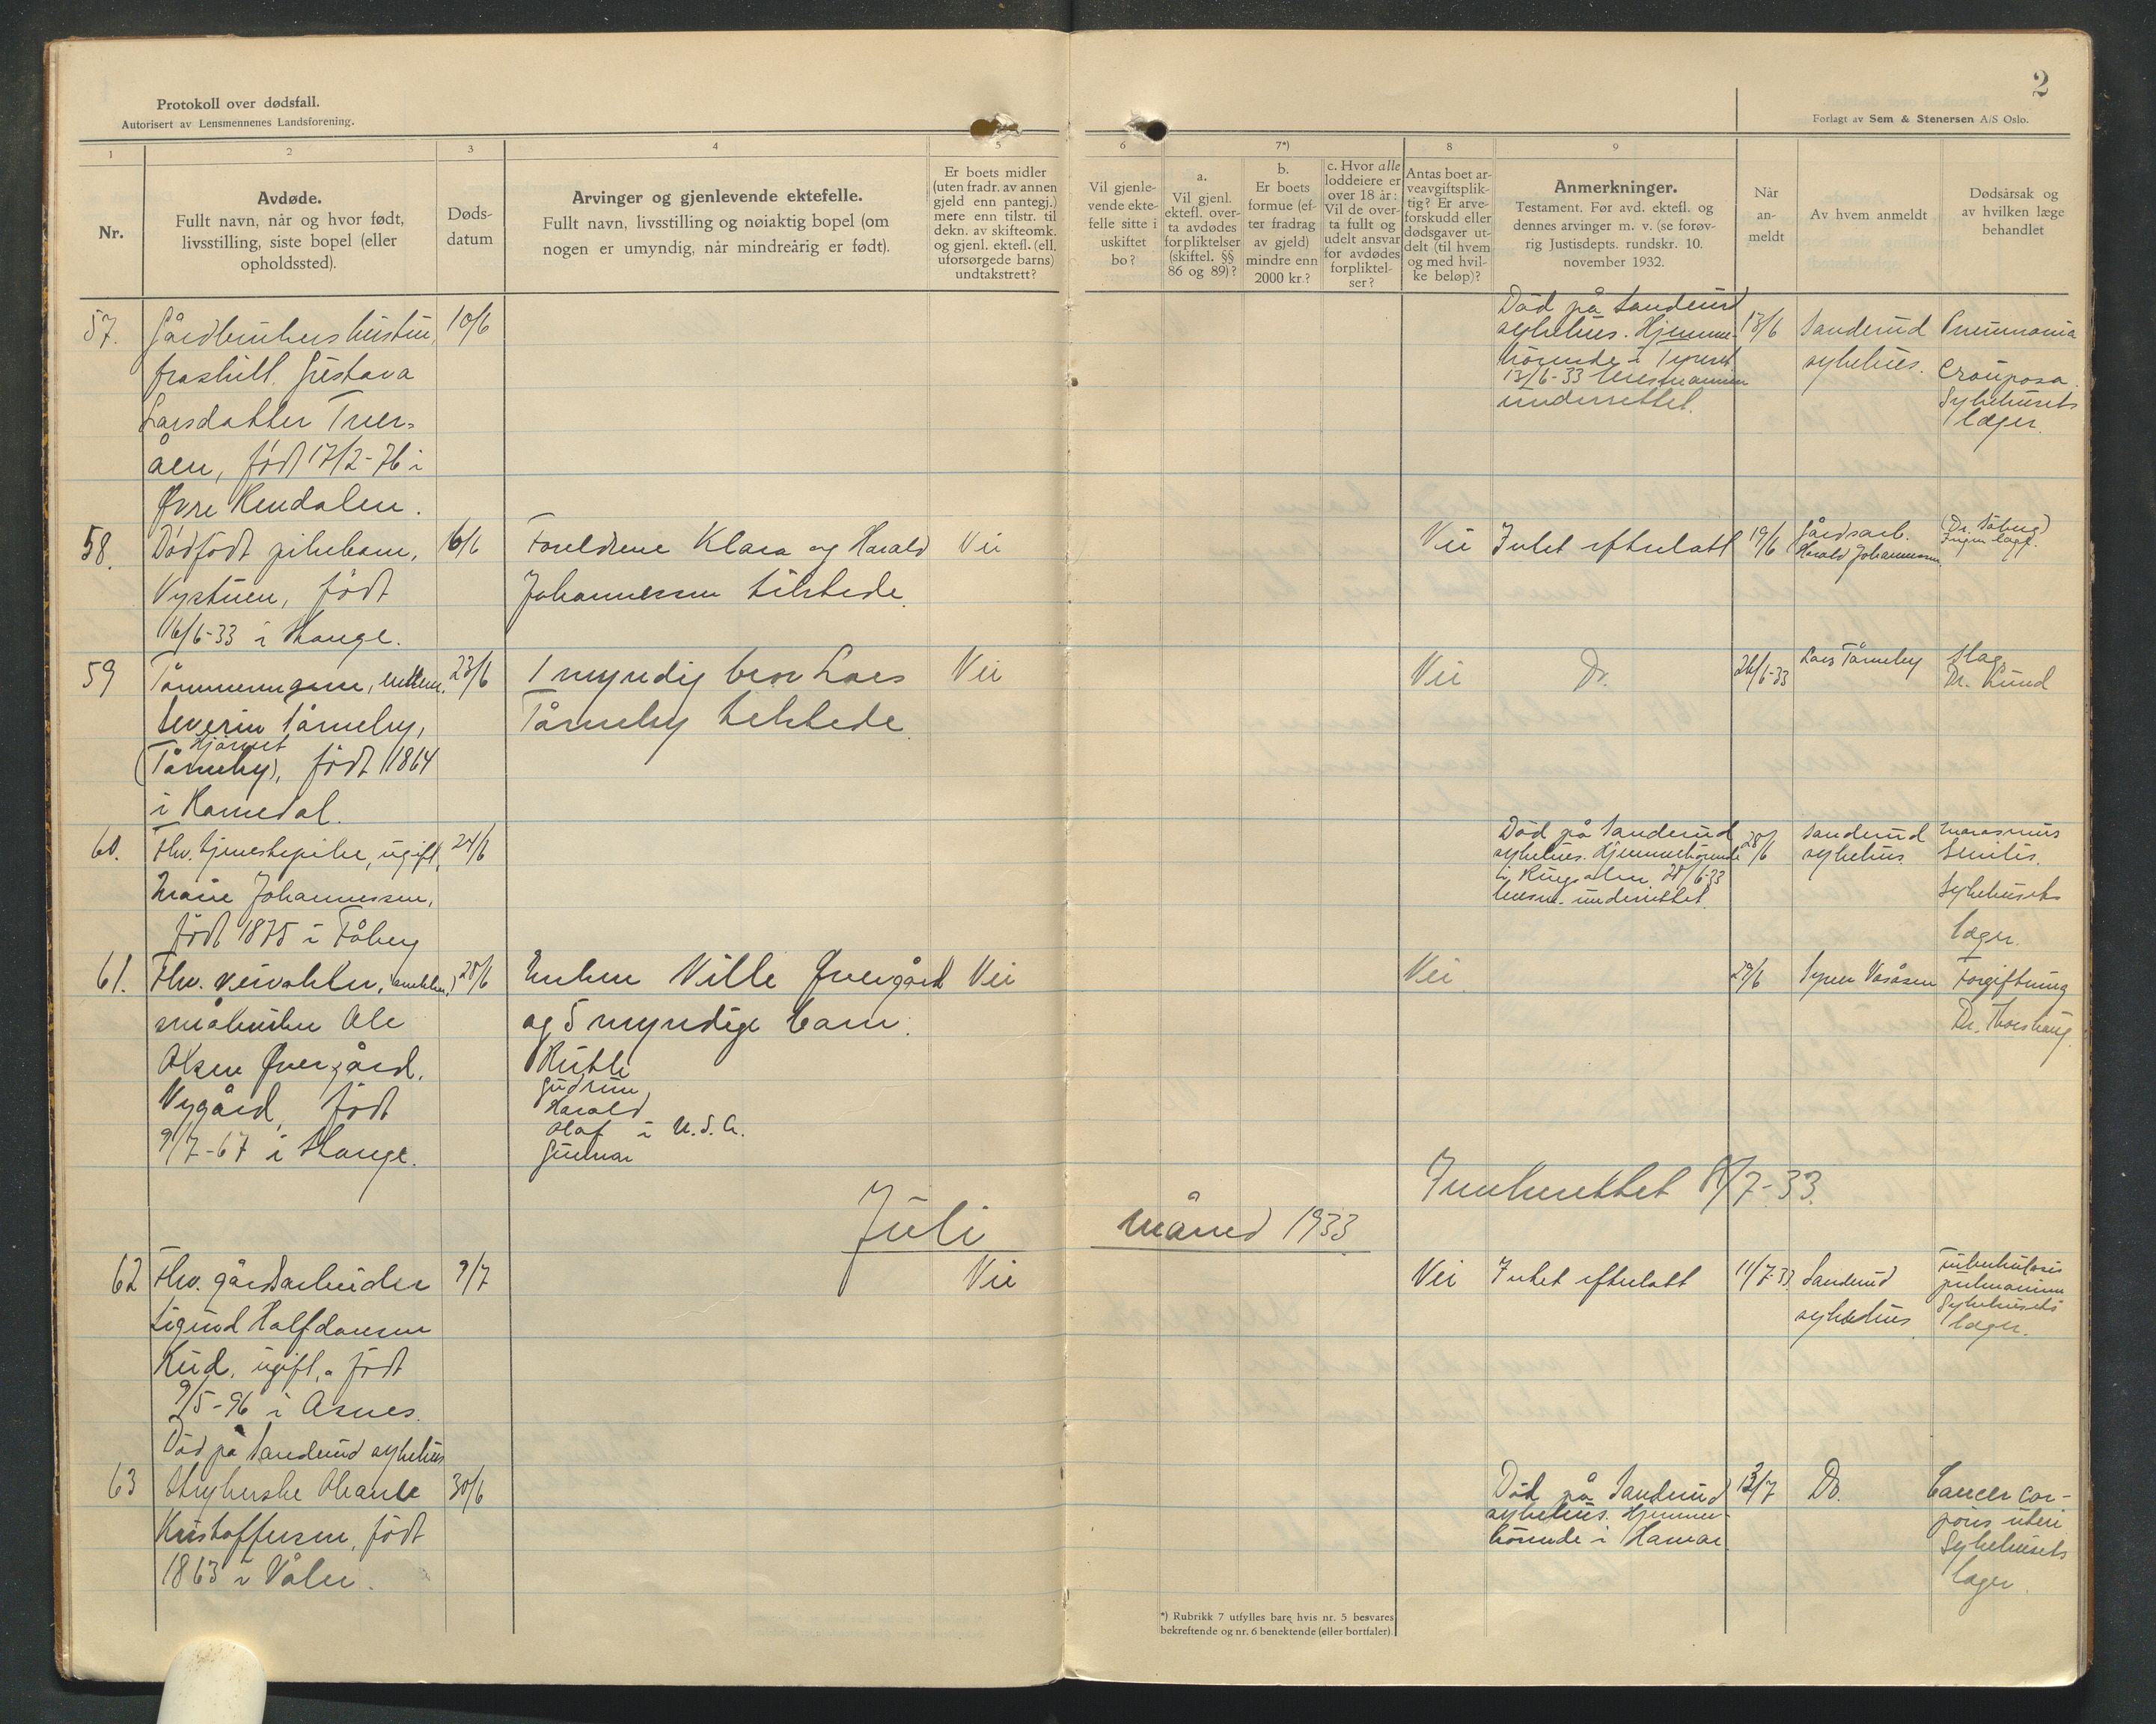 Protokoll over dødsfall.
Autorisert av Lensmennenes Landsforening.
2
Forlagt av Sem & Stenersen A/S Oslo.
1
2
3
4
5
6
7*)
8
9
Nr.
Avdøde.
Fullt navn, når og hvor født,
livsstilling, siste bopel (eller
opholdssted).
Døds-
datum
Arvinger og gjenlevende ektefelle.
Fullt navn, livsstilling og nøiaktig bopel (om
nogen er umyndig, når mindreårig er født).
Er boets midler
(uten fradr. av annen
gjeld enn pantegj.)
mere enn tilstr. til
dekn. av skifteomk.
og gjenl. ektefl. (ell.
uforsørgede barns)
undtakstrett?
Vil gjenle-
vende ekte-
felle sitte i
uskiftet
bo?
a.
Vil gjenl.
ektefl. over-
ta avdødes
forpliktelser
(skiftel. §§
86 og 89)?
b.
Er boets
formue (ef-
ter fradrag
av gjeld)
mindre enn
2000 kr.?
c. Hvor alle
loddeiere er
over 18 år:
Vil de over-
ta fullt og
udelt ansvar
for avdødes
forpliktel-
ser?
Antas boet ar-
veavgiftsplik-
tig? Er arve-
forskudd eller
dødsgaver ut-
delt (til hvem
og med hvil-
ke beløp)?
Anmerkninger.
Testament. Før avd. ektefl. og
dennes arvinger m. v. (se forøv-
rig Justisdepts. rundskr. 10.
november 1932.
Når
an-
meldt
Av hvem anmeldt
Dødsårsak og
av hvilken læge
behandlet
57.
Gårdbrukers hustru,
fraskilt. Gustava
Larsdatter Tver-
åen, født 17/2-76 i
Øvre Rendalen.
10/6
Død på Sanderud
sykehus. Hjemme-
hörende i Tynset
13/6-33 lensmannen
underrettet.
13/6
Sanderud
sykehus.
Pneumonia
crouposa.
Sykehusets
læger.
58.
Dödfödt pikebarn,
Nystuen, född
16/6-33 i Stange.
16/6
Foreldrene Klara og Harald
Johannessen tilstede.
Nei
Nei
Intet efterlatt
19/6
Gårdsarb.
Harald Johannessen
(Dr. Taberg)
Ingen læge.
59
Tömmermann, enkem.
Severin Tårneby,
Hjörnet
(Tårneby), född 1864
i Romedal.
23/6
1 myndig bror Lars
Tårneby tilstede.
Nei
Nei
Do.
26/6-33
Lars Tårneby
Slag
Dr. Lund
60.
Fhv. tjenestepike, ugift,
Marie Johannessen,
född 1875 i Fåberg
24/6
Död på Sanderud
sykehus. Hjemmehörende
i Ringsaker 28/6-33
lensm. underrettet.
28/6
Sanderud
sykehus
Marasmus
senilis.
Sykehusets
læger.
61.
Fhv. veivokter,
småbruker Ole
Olsen Övergård.
Nygård, född
9/7-67 i Stange.
28/6
Enken Nille Övergård
og 5 myndige barn.
Ruth
Gudrun
Harald
Olaf i U.S.A.
Gunnar
Nei
Nei
29/6
Syver Vasåsen
Forgiftning
Dr. Thorshaug.
Innberettet 8/7-33.
Juli måned 1933
62
Fhv. gårdsarbeider
Sigurd Halfdansen
Rud, ugift, född
9/5-96 i Åsnes.
Död på Sanderud sykehus
9/7
Nei
Nei
Intet efterlatt
11/7-33
Sanderud
sykehus
Tuberkulosis
pulmonum
Sykehusets
læger.
63
Strykerske Oleanle
Kristoffersen, född
1863 i Våler.
30/6
Död på Sanderud
sykehus. Hjemme-
hörende i Hamar
13/7
Do.
Cancer cor-
poris uteri
Sykehusets
læger.
*) Rubrikk 7 utfylles bare hvis nr. 5 besvares
bekreftende og nr. 6 benektende (eller bortfaler).